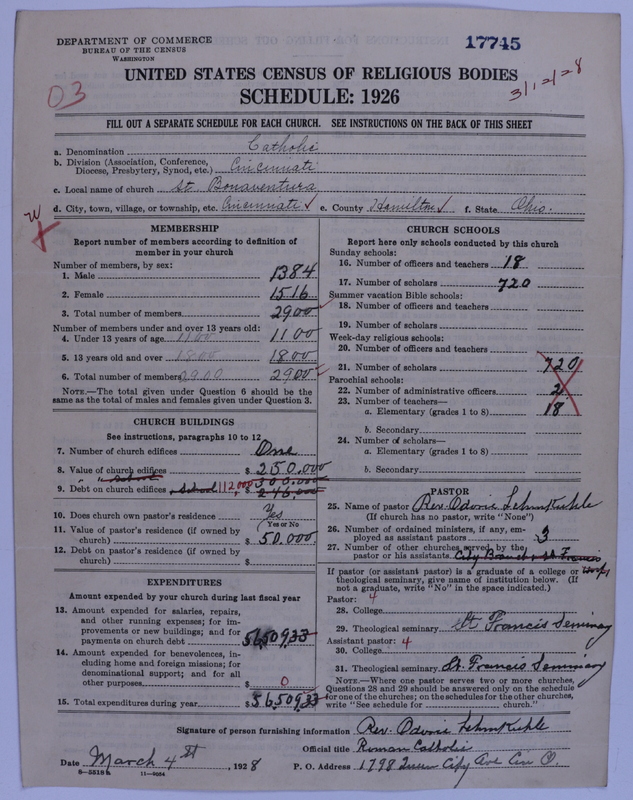 DEPARTMENT OF COMMERCE
BUREAU OF THE CENSUS
WASHINGTON
17745
UNITED STATES CENSUS OF RELIGIOUS BODIES
SCHEDULE: 1926
03
FILL OUT A SEPARATE SCHEDULE FOR EACH CHURCH. SEE INSTRUCTIONS ON THE BACK OF THIS SHEET
a. Denomination Catholic
b. Division (Association, Conference, Diocese, Presbytery, Synod, etc.) Cincinnati
c. Local name of church St. Bonaventura
d. City, town, village, or township, etc. Cincinnati e. County Hamilton f. State Ohio.
MEMBERSHIP
Report number of members according to definition of
member in your church
Number of members, by sex:
1. Male 1384
2. Female 1516
3. Total number of members 2900
Number of members under and over 13 years old:
4. Under 13 years of age 1100 1100
5. 13 years old and over 1800 1800
6. Total number of members 2900 2900
NOTE.—The total given under Question 6 should be
same as the total of males and females given under Question 3.
CHURCH BUILDINGS
See instructions, paragraphs 10 to 12
7. Number of church edifices One
8. Value of church edifices $ 250.000
" School 300.000
9. Debt on church edifices School 112,000 $ 246.000
10. Does church own pastor's residence? Yes
(Yes or No)
11. Value of pastor's residence (if owned by
church) $ 50.000
12. Debt on pastor's residence (if owned by
church) $
EXPENDITURES
Amount expended by your church during last fiscal year
13. Amount expended for salaries, repairs,
and other running expenses; for im-
provements or new buildings; and for
payments on church debt 56,509,33
14. Amount expended for benevolences, in-
cluding home and foreign missions; for
denominational support; and for all
other purposes $ 0
15. Total expenditures during year $ 56,509,33
CHURCH SCHOOLS
Report here only schools conducted by this church
Sunday schools:
16. Number of officers and teachers 18
17. Number of scholars 720
Summer vacation Bible schools:
18. Number of officers and teachers
19. Number of scholars
Week-day religious schools:
20. Number of officers and teachers
21. Number of scholars 720
Parochial schools:
22. Number of administrative officers 2
23. Number of teachers—
a. Elementary (grades 1 to 8) 18
b. Secondary
24. Number of scholars—
a. Elementary (grades 1 to 8)
b. Secondary
PASTOR
25. Name of pastor Rev. Odoric Lehmkuhle
(If church has no pastor, write "None")
26. Number of ordained ministers, if any, em-
ployed as assistant pastors 3
27. Number of other churches served by the
pastor or his assistants City Branch St Francis
If pastor (or assistant pastor) is a graduate of a college or
theological seminary, give name of institution below. (If
not a graduate, write "No" in the space indicated.)
Pastor: 4
28. College
29. Theological seminary St Francis Seminary
Assistant pastor: 4
30. College
31. Theological seminary St. Francis Seminary
NOTE.—Where one pastor serves two or more churches,
Questions 28 and 29 should be answered only on the schedule
for one of the churches; on the schedules for the other churches,
write "See schedule for church."
Signature of person furnishing information Rev. Odoric Lehmkuhle
Official title Roman Catholic
Date March 4st, 1928 P. O. Address 1798 Queen City Ave Cin O.
8—5518a 11—9054